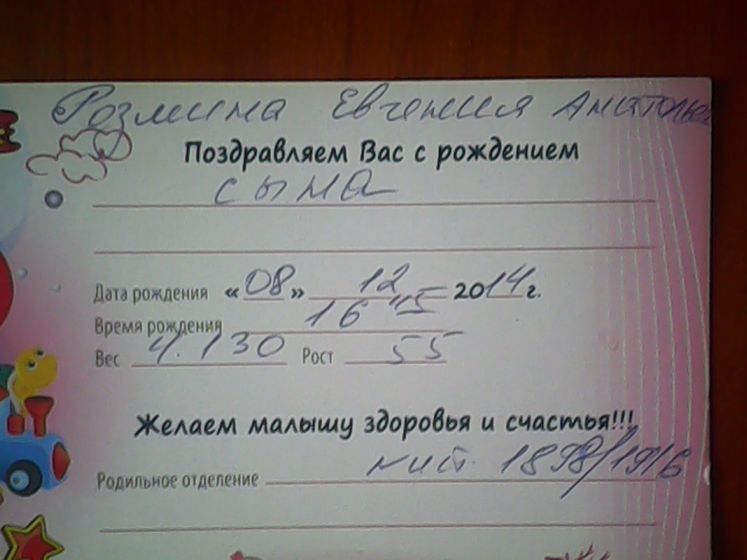 Розмина Евгения Анатолье
Поздравляем Вас с рождением
сына
Дата рождения «08» 12 2014г.
Время рождения 16 45
Вес 4.130 Рост 55
Желаем малышу здоровья и счастья!!!
Родильное отделение 1898/1916